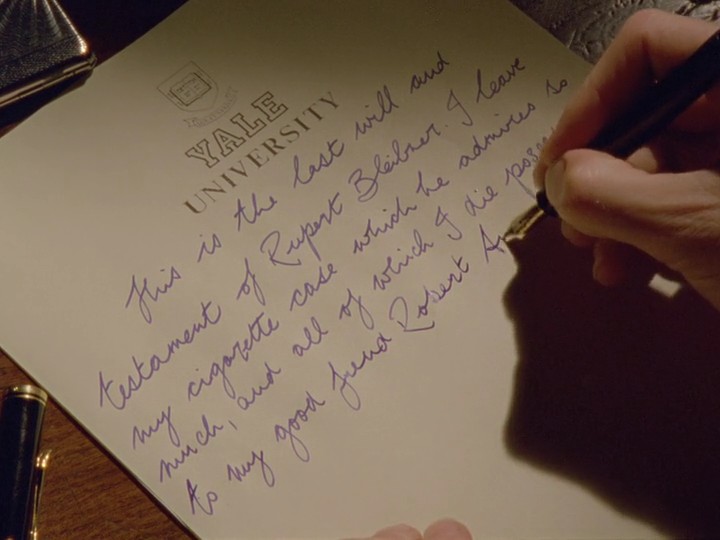 YALE
UNIVERSITY
This is the last will and
testament of Rupert Bleibner. I leave
my cigarette case which he admires so
much, and all of which I die
to my good friend Robert A